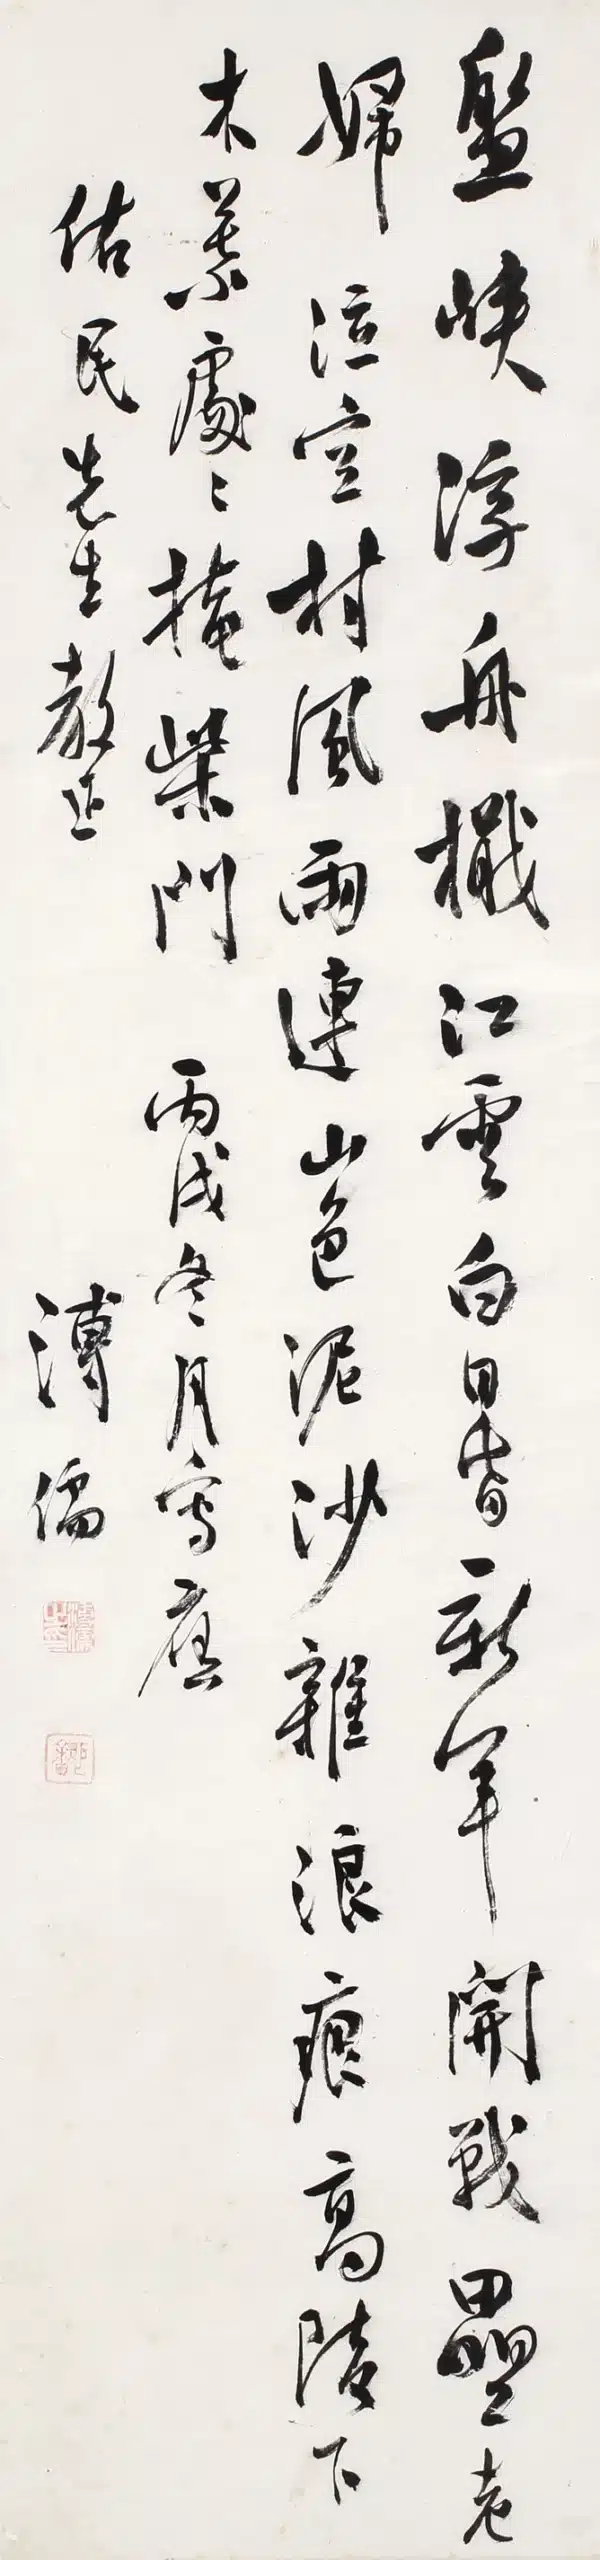 盤峽浮舟檝江雲白日昏新軍開戰壘老
婦泣空村風雨連山色泥沙雜浪痕高陵下
木葉處〻掩柴門 丙戌冬月寫應
佑民先生教正 溥儒